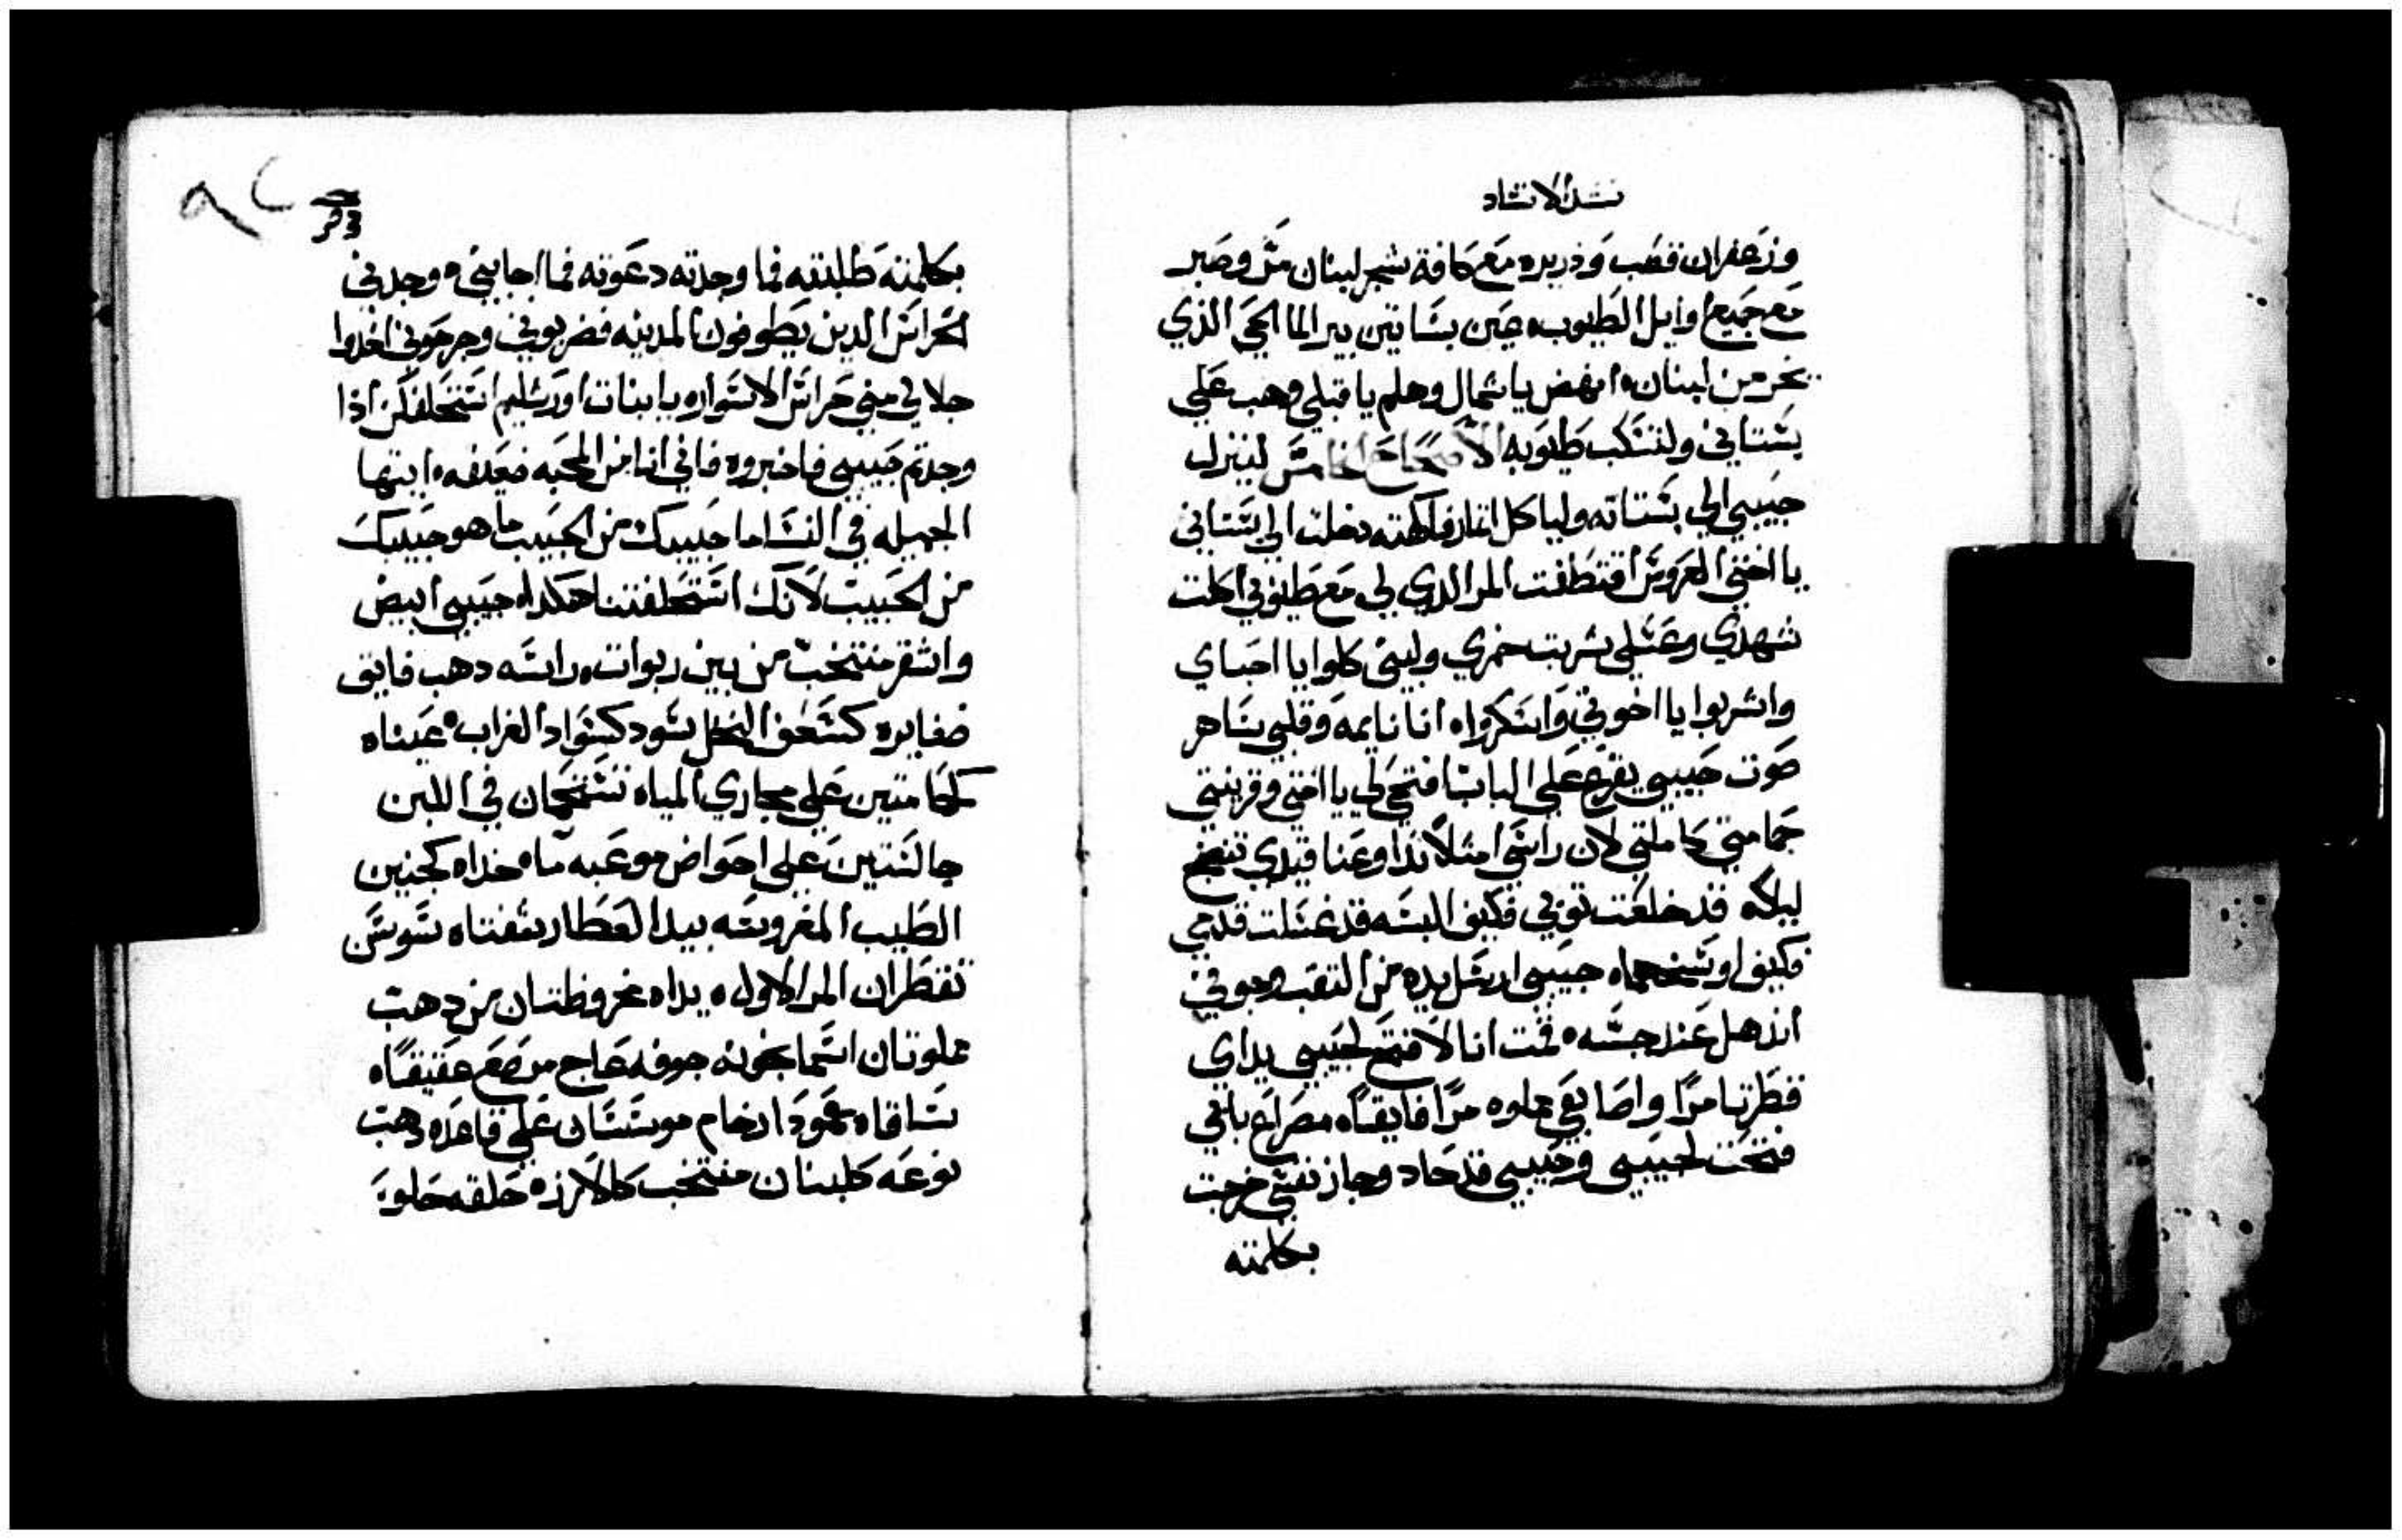 نشيد الانشاد
وزعفران قصب وذريره مع كافة شجر لبنان مر وصبر
مع جميع اوايل الطيوب عين بساتين بير الما الحي الذي
يخر من لبنان انهض يا شمال وهلم يا قبلي وهب علي
بستاني ولتنسكب طيوبه الاصحاح الخامس لينزل
حبيبي الي بستانه ولياكل اثمار فاكهته دخلت الي بستاني
يا اختي العروس اقتطفت المر الذي لي مع طيوبي اكلت
شهدي وعسلي شربت خمري ولبني كلوا يا احباي
واشربوا يا اخوتي واسكروا انا نايمه وقلبي ساهر
صوت حبيبي يقرع علي الباب افتحي لي يا اختي وقرينتي
حمامتي كاملتي لان راسي امتلا ندا وعناقيدي تنضح
ليلا قد خلعت توبي فكيف البسه قد غسلت قدمي
فكيف اوسخهما حبيبي ارسل يده من التقب وجوفي
اندهل عند جسه قمت انا لافتح لحبيبي يداي
قطرتا مرا واصابعي مملوه مرا فايقا مصراع بابي
فتحت لحبيبي وحبيبي قد حاد وجاز نفسي خرجت
بكلمته
بكلمته طلبته فما وجدته دعوته فما اجابني وجدني
الحراس الدين يطوفون المدينه فضربوني وجرحوني اخدوا
جلالي مني حراس الاسوار يا بنات اورشليم استحلفكن اذا
وجدتم حبيبي فاخبروه فاني انا من المحبه ضعيفه ايتها
الجميله في النسا ما حبيبك من الحبيب ما هو حبيبك
من الحبيب لانك استحلفتنا هكدا حبيبي ابيض
واشقر منتخب من بين ربوات راسه دهب فايق
ضفايره كسعف النخل سود كسواد الغراب عيناه
كحمامتين علي مجاري المياه تستحمان في اللبن
جالستين علي احواض موعبه ماه خداه كجنين
الطيب المغروسه بيد العطار شفتاه سوسن
تقطران المر الاول يداه مخروطتان من دهب
مملوتان اسمانجونه جوفه عاج مرصع عقيقا
ساقاه عمودا رخام موسسان علي قاعده دهب
نوعه كلبنان منتخب كالارز حلقه حلو